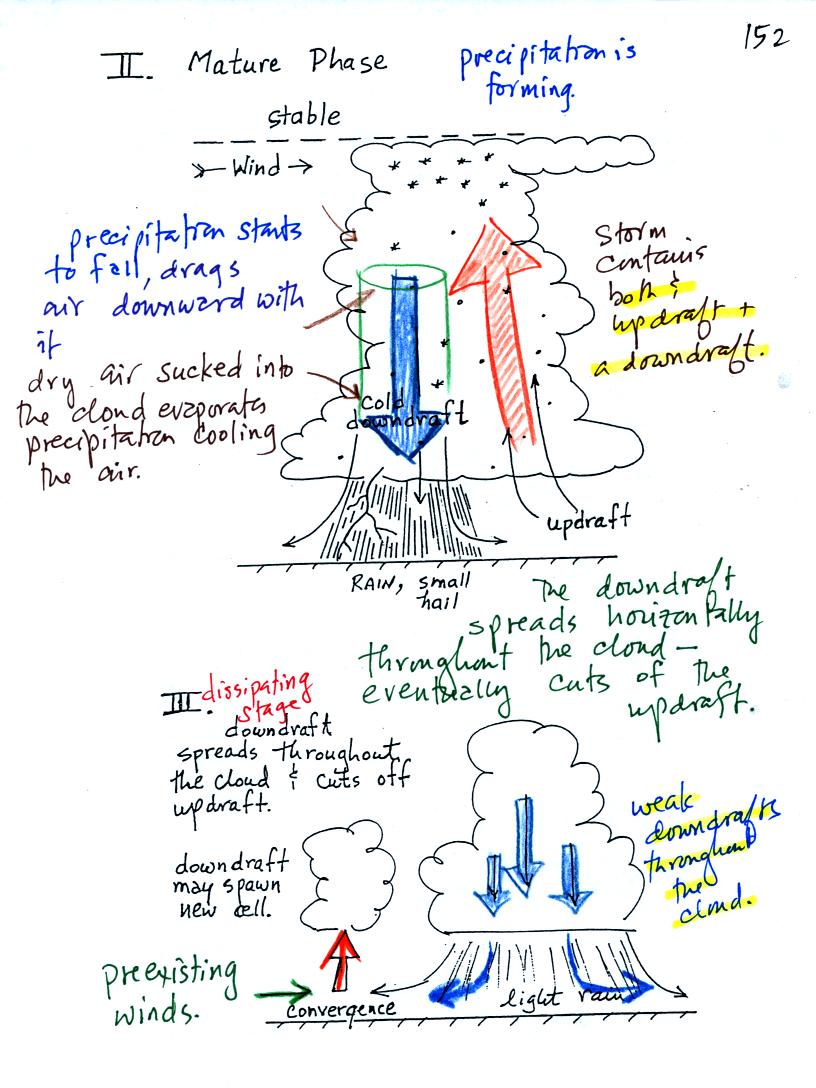 152
II. Mature Phase
precipitation is
forming.
stable
Wind
precipitation starts
to fall, drags
air downward with
it
dry air sucked into
the cloud evaporates
precipitation cooling
the air.
Storm
contains
both &
updraft +
a downdraft.
Cold
downdraft
updraft
RAIN, small
hail
The downdraft
spreads horizontally
throughout the cloud —
eventually cuts of the
updraft.
III. dissipating
stage
downdraft
spreads throughout
the cloud & cuts off
updraft.
downdraft
may spawn
new cell.
weak
downdrafts
throughout
the
cloud.
preexisting
winds.
convergence
light rain